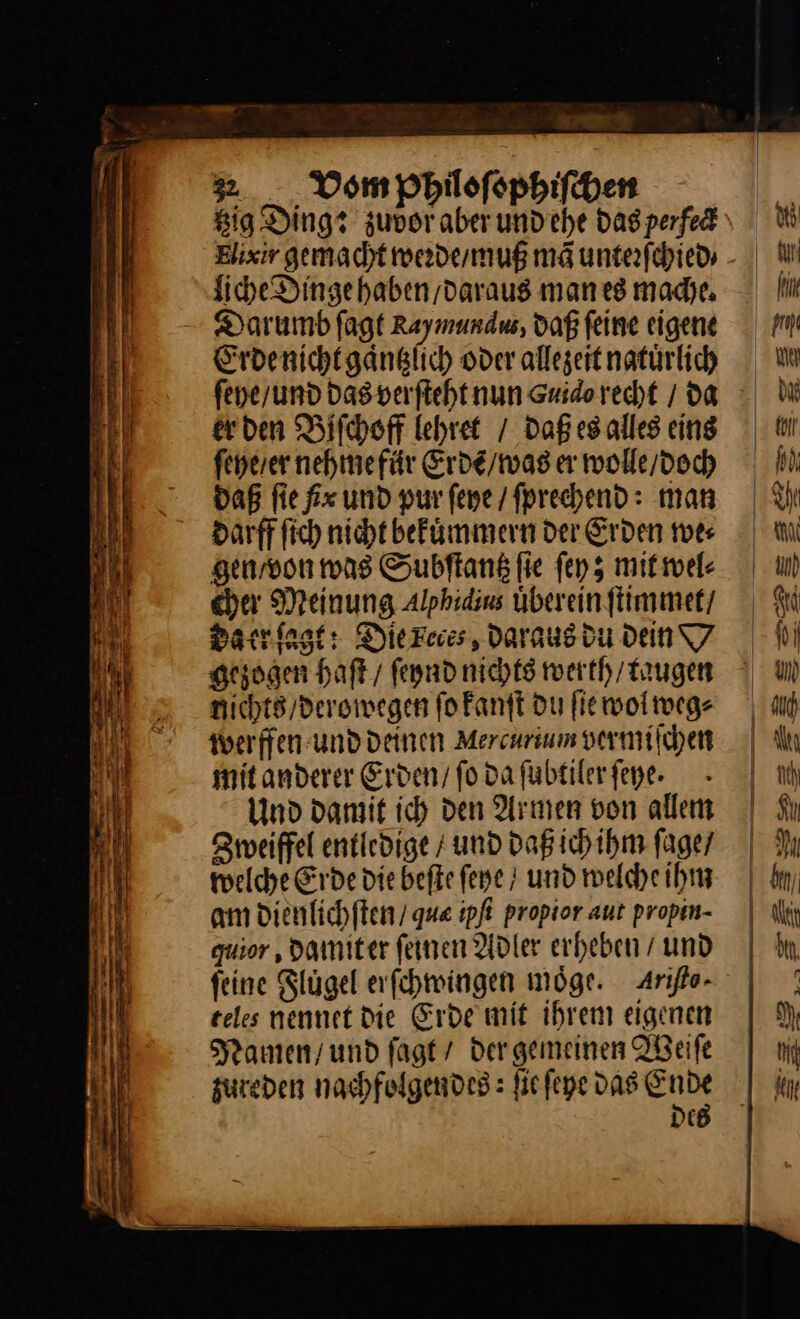 32 Vom Philoſophiſchen
tzig Ding: zuvor aber und ehe das perfect
Elixir gemacht werde/muß mã unterſchied⸗
liche Dinge haben/daraus man es mache.
Darumb ſagt Raymundus, daß ſeine eigene
Erde nicht gäntzlich oder allezeit natürlich
ſeye/und das verſteht nun Guido recht / da
er den Biſchoff lehret / daß es alles eins
ſeye/er nehme für Erdẽ/was er wolle/doch
daß ſie fix und pur ſeye / ſprechend: man
darff ſich nicht bekümmern der Erden we⸗
gen/von was Subſtantz ſie ſey; mit wel⸗
cher Meinung Alphidius überein ſtimmet/
da er ſagt: Die Feces, daraus du dein 🜄
gezogen haſt / ſeynd nichts werth/taugen
nichts/derowegen ſo kanſt du ſie wol weg⸗
werffen und deinen Mercurium vermiſchen
mit anderer Erden/ ſo da ſubtiler ſeye.
Und damit ich den Armen von allem
Zweiffel entledige / und daß ich ihm ſage/
welche Erde die beſte ſeye / und welche ihm
am dienlichſten/ quæ ipſi propior aut propin-
quior, damit er ſeinen Adler erheben / und
ſeine Flügel erſchwingen möge. Ariſto-
teles nennet die Erde mit ihrem eigenen
Namen/ und ſagt / der gemeinen Weiſe
zureden nachfolgendes: ſie ſeye das Ende
des